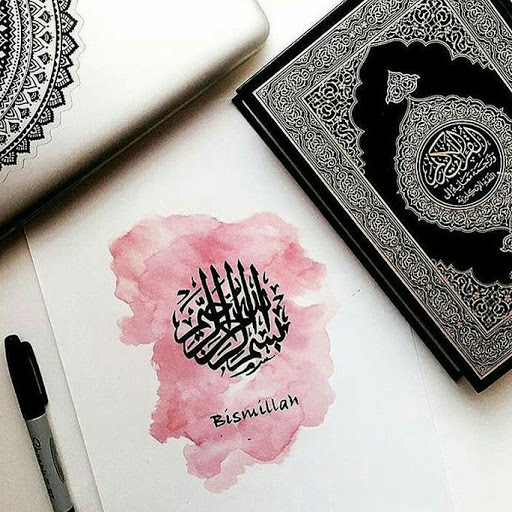 القرآن الكريم
بسم الله الرحمن الرحيم
Bismillah
Sharpie